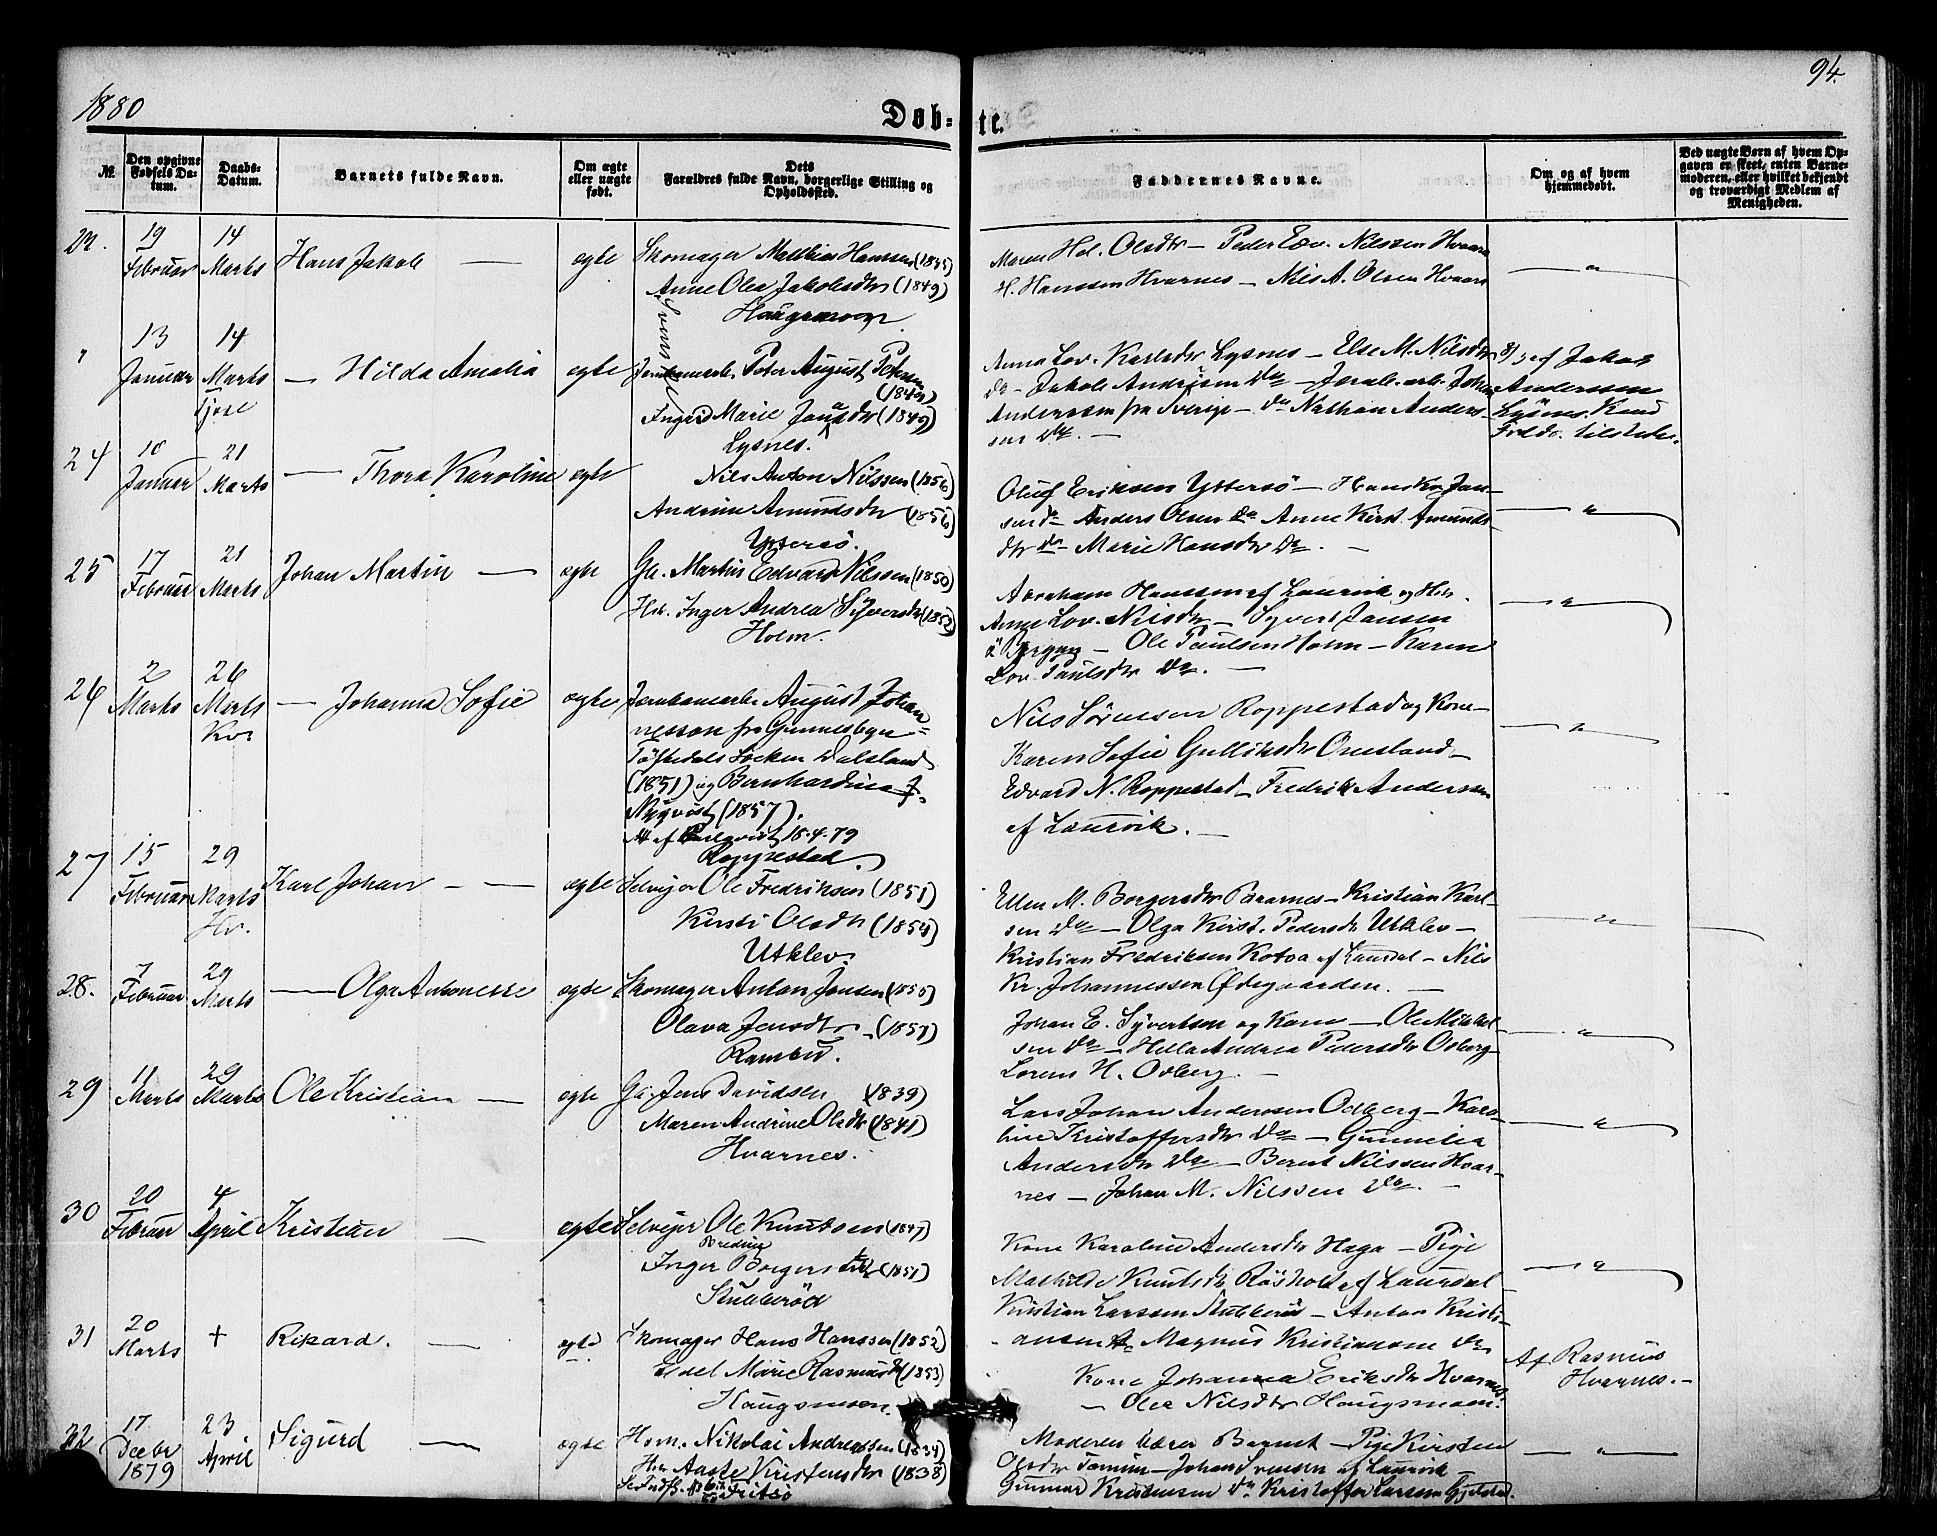 1880
94.
Døb-
te.
№
Den opgivne Fødsels Datum.
Daabs-Datum.
Barnets fulde Navn.
Om ægte eller uægte født.
Dets Forældres fulde Navn, borgerlige Stilling og Opholdssted.
Faddernes Navne.
Om og af hvem hjemmedøbt.
Ved uægte Børn af hvem Opgaven er skeet, enten Barnemoderen, eller hvilket bekjendt og troværdigt Medlem af Menigheden.
19 14
Februar Marts Hans Jakob — ægte Skomager Mathias Hanssen
Anne Olea Jakobsdtr (1849)
Maren Hel. Olsdtr — Peder Edv. Nilssen
H. Hanssen Hvarnes — Nils A. Olsen
13 14
Januar Marts — Hilda Amalia ægte Jernbanearb. Peter August
Svenske
Ingrid Marie (1849)
Lysnes.
Anna Lov. Karlsdtr Lysnes — Else M. Nilsdtr
Do — Jakob Andersen Do — Johan
Anderssen fra Sverige — Do Nathan Anders-
sen Do. —
af Jakob
Anderssen
Lysnes. Knud
Fredr. tilstede.
24 10 21
Januar Marts — Thora Karoline ægte Nils Anton Nilssen (1856)
Andrine Amundsdtr (1856)
Yttersø.
Oluf Eriksen Yttersø — Hans Kr. Jan-
sen do — Anders Olsen Do Anne Kirst. Amunds-
dtr do — Marie Hansdtr Do. —
25 17 21
Februar Marts Johan Martin — ægte Ga. Martin Edvard Nilssen (1850)
Hu. Inger Andrea Syversdtr (1852)
Holm.
Abraham Hanssen af Laurvik og Hu.
Anne Lov. Nilsdtr — Syvert Jansen
Ole Paulsen Holm — Karen
Lov. Paulsdtr Do. —
26 2 26
Marts Marts — Johanna Sofie ægte Jernbanearb. August Johan-
nesson fra Gunnesbyn
Töftedals Socken Dalsland
(1851) og Bernhardina J.
Nyqvist (1857).
18.4.79
Roppestad.
Nils Sørensen Roppestad og Kone
Karen Sofie Gulliksdtr Omsland —
Edvard N. Roppestad — Fredrik Anderssen
af Laurvik. —
27 15 29
Februar Marts Karl Johan — ægte Selvejer Ole Fredriksen (1851)
Hv.
Kirsti Olsdtr (1854)
Utklev.
Ellen M. Borgersdtr Brarnes — Kristian Karl-
sen Do — Olga Kirst. Pedersdtr Utklev —
Kristian Fredriksen af Laurdal — Nils
Kr. Johannessen Ødegaarden. —
28. 7 29
Februar Marts — Olga Antonette ægte Skomager Anton Jensen (1855)
Olava Jensdtr (1851)
Rambu.
Johan E. Syvertsen og Kone — Ole Mikkel-
sen Do — Hella Andrea Pedersdtr Odberg —
Lorens H. Odberg. —
29 11 29
Marts Marts Ole Kristian — ægte Ga. Jens Davidsen (1839)
Maren Andrine Olsdtr (1841)
Hvarnes.
Lars Johan Anderssen Odberg — Karo-
line Kristoffersdtr Do — Gunnelia
Andersdtr Do — Bernt Nilssen Hvar-
nes — Johan M. Nilssen Do. —
30 20 4
Februar April Kristian — ægte Selvejer Ole Knutsen (1847)
Inger Borgersdtr (1851)
Stubberød
Kone Karoline Andersdtr Haga — Pige
Mathilde Knutsdtr Røsholt af Laurdal
Kristian Larssen Stubberød — Anton Kristi-
ansen Do Magnus Kristiansen Do
31 20
Marts + Rikard. — ægte Skomager Hans Hanssen (1852)
Marie Rasmusdtr (1853)
Haugsmoen.
Kone Johanna Eriksdtr Hvarnes
— Olea Nilsdtr Haugsmoen.
Af Rasmus
Hvarnes. —
32 17 23
Decbr April Sigurd — ægte Hom. Nikolai Andreassen (1834)
1879
Hu. Aaste Kristensdtr (1838)
Fritsø
Moderen bærer Barnet — Pige Kirsten
Olsdtr — Johan Svensen af Laurvik
Gunnar Kristensen Do Kristoffer Larssen